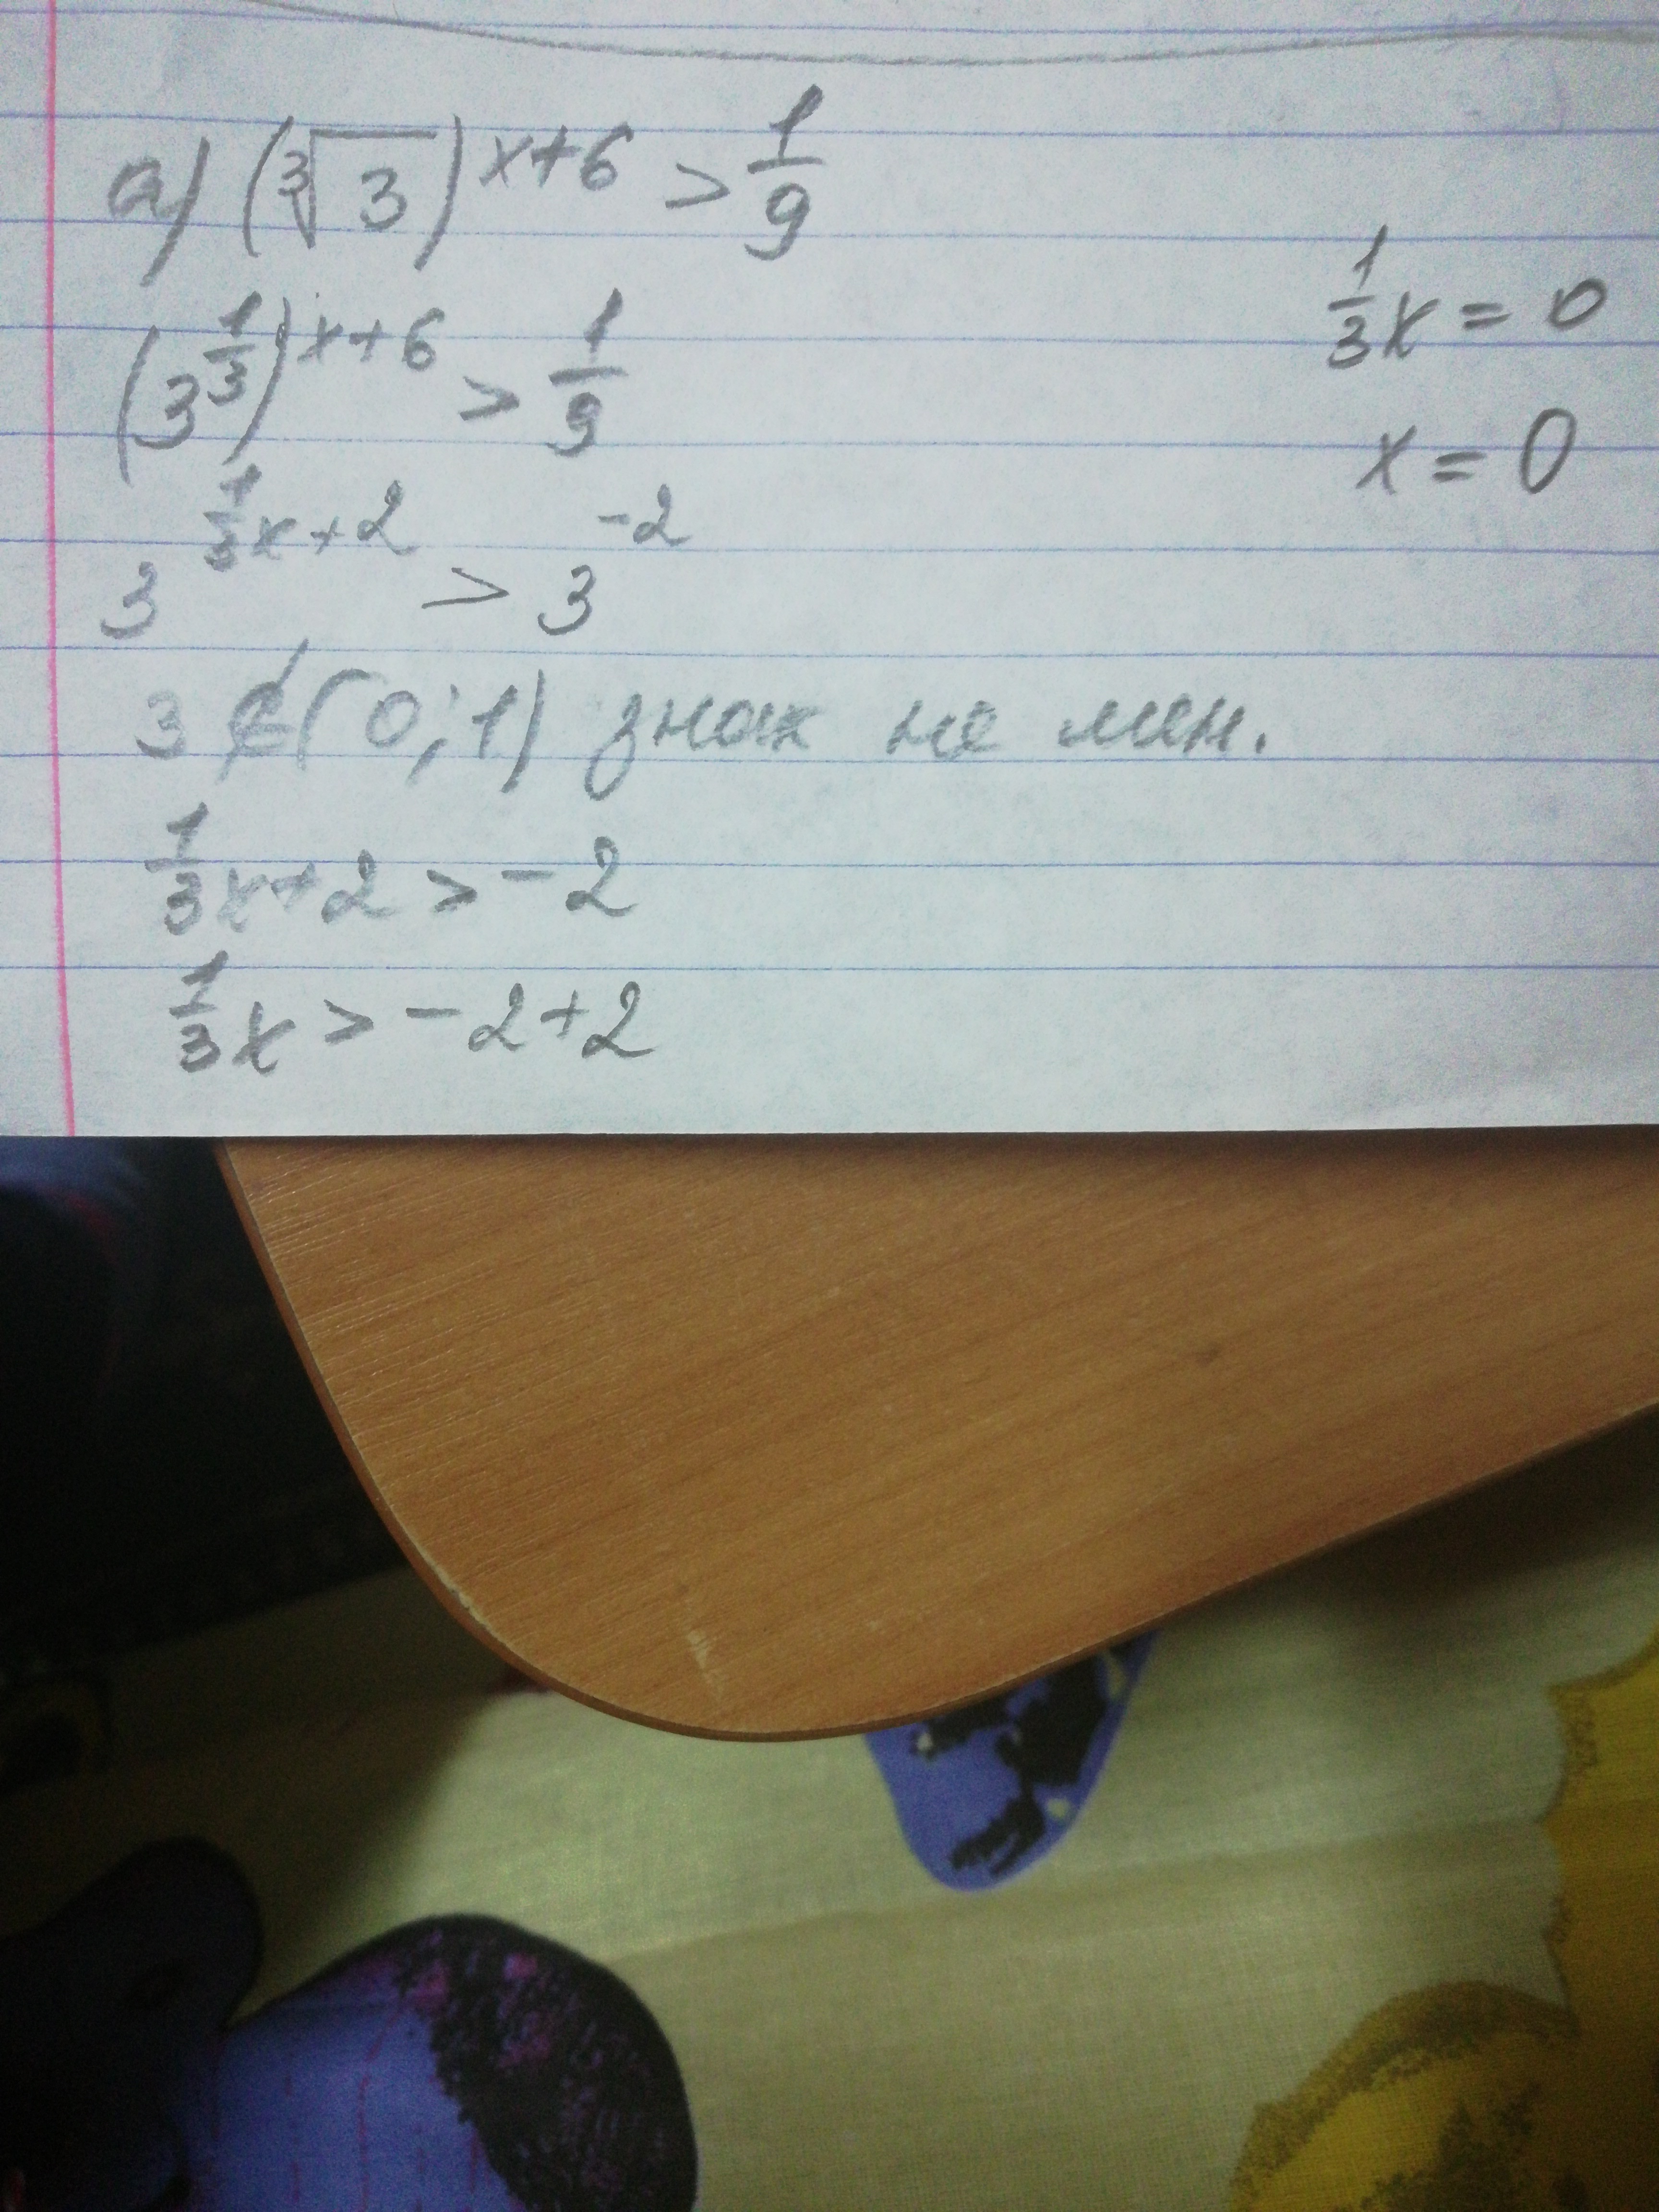 а) (∛3)^(x+6) > 1/9
(3^(1/3))^(x+6) > 1/9
3^(1/3x+2) > 3^(-2)
3 ∉ (0;1) знак не мен.
1/3x+2 > -2
1/3x > -2+2
1/3x = 0
x = 0